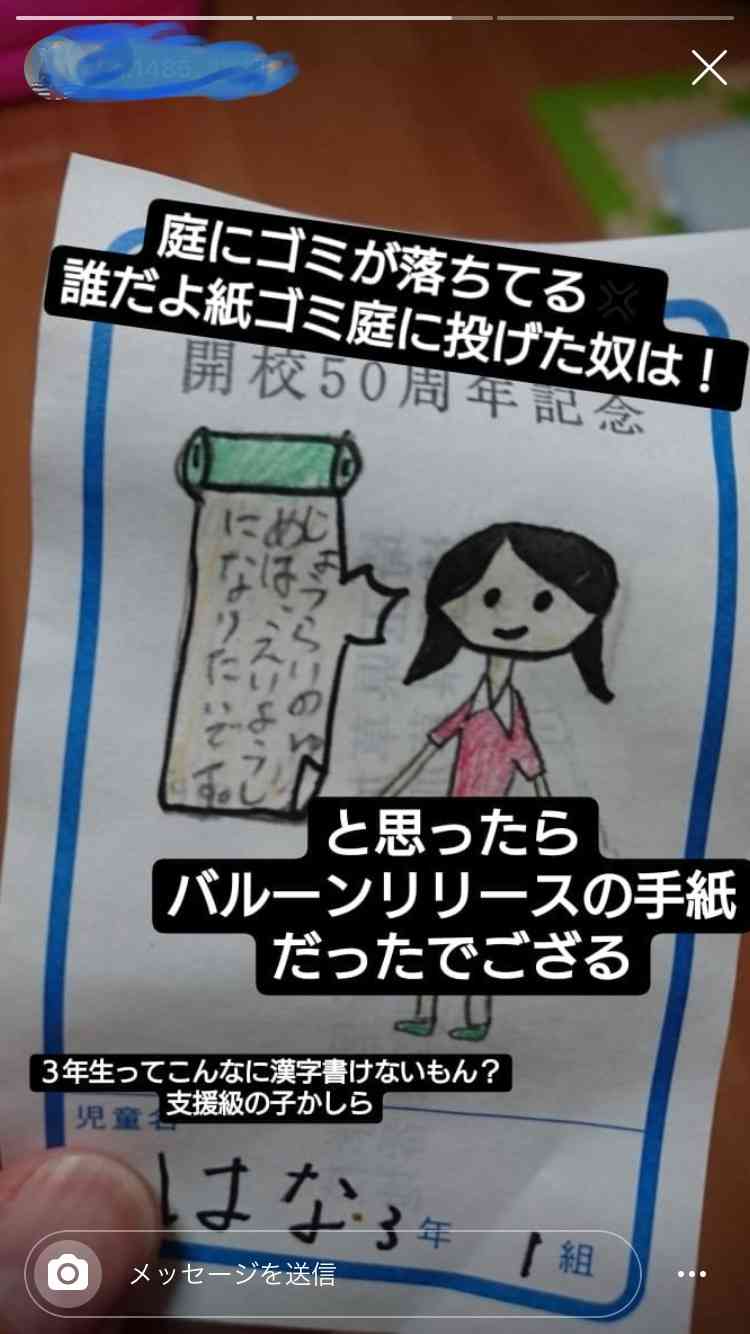 庭にゴミが落ちてる
誰だよ紙ゴミ庭に投げた奴は！
開校50周年記念
しょうらいのゆ
めは、えいようし
になりたいです。
と思ったら
バルーンリリースの手紙
だったでござる
３年生ってこんなに漢字書けないもん？
支援級の子かしら
児童名
はな 3年 1組
メッセージを送信